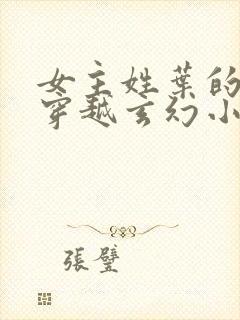 女主姓葉的
穿越玄幻小
張壁